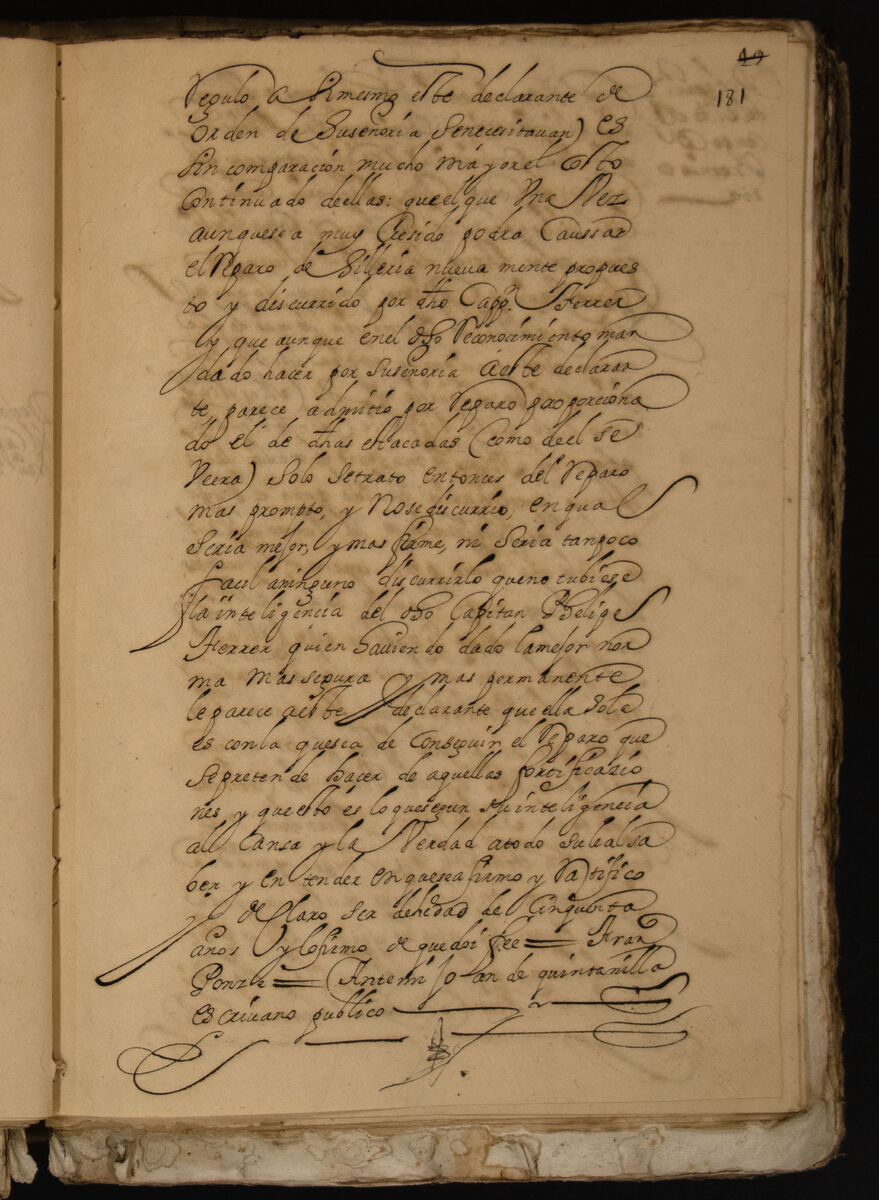 49
181
Regulo a simesmo este declarante de
orden de Suseñoria Senecesitauan) es
sin comparación mucho mayor el Costo
Continuado deellas: que el que Vna Vez
aunquesea muy Cresido podra Caussar
el Reparo de Silleria nueva mente propues
to y discurrido por dho Capp.n Ferrer
y que aunque en el dho Reconocimiento man
dado hacer por Suseñoria aeste declaran
te, parece admitió por Reparo proporciona
do el de dhas estacadas (como deel se
Veera) Solo Setrato entonses del Reparo
mas prompto, y Nosediscurrio, en qual
Seria mejor, y mas firme, ni Seria tanpoco
facil aninguno discurrirlo queno tubiese
la inteligencia del dho Capitan Phelipe
Ferrer quien haviendo dado lamejor nor
ma mas segura y mas permanente
le parece aeste declarante que ella Sola
es con la quesea de Conseguir el Reparo que
Sepretende hacer de aquellas fortificacio
nes y que esto es loquesegun su inteligencia
al Cansa y la Verdad atodo Suleal sa
ber y entender en quesea firmo y Ratifico
declaro ser dehedad de Cinquenta
años y lo firmo de que doi fee = Fran
Ponze = Antemi Joan de quintanilla
escriuano publico